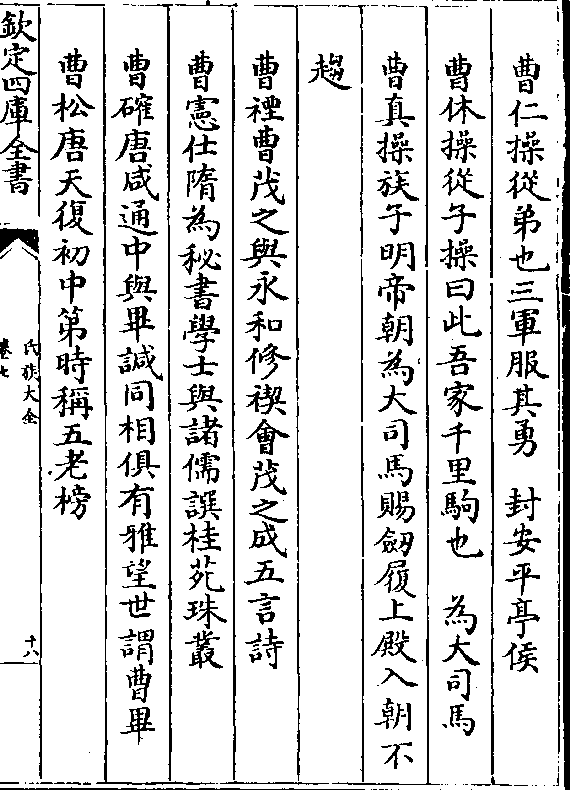 曹仁操從弟也三軍服其勇　封安平亭侯
曹休操從子操曰此吾家千里駒也　為大司馬
曹真操族子明帝朝為大司馬賜劔履上殿入朝不
趨
曹禋曹茂之與永和修禊會茂之成五言詩
曹憲仕隋為秘書學士與諸儒譔桂苑珠叢
曹確唐咸通中與畢諴同相俱有雅望世謂曹畢
曹松唐天復初中第時稱五老榜
欽定四庫全書
氏族大全
卷七
十八